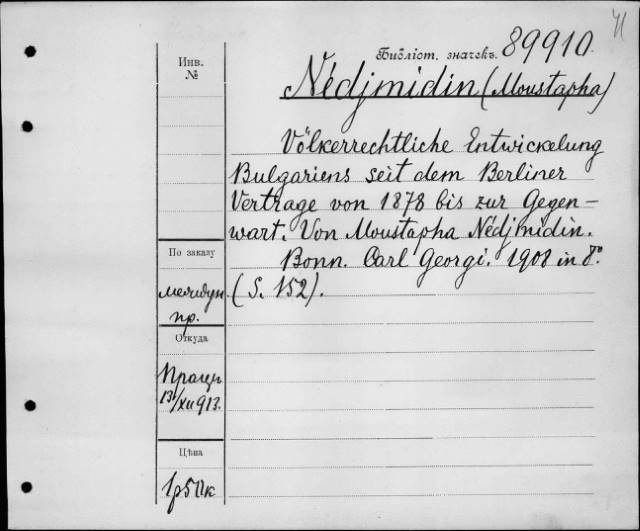 Библіот. значекъ. 89910.
Инв.
№
Nédjmidin (Moustapha)
Völkerrechtliche Entwickelung
Bulgariens seit dem Berliner
Vertrage von 1878 bis zur Gegen–
wart. Von Moustapha Nédjmidin.
По заказу
Bonn. Carl Georgi. 1908 in 8°.
(S. 152).
междун.
пр.
Откуда
Працъ
13/XII 913.
Цѣна
1р50к